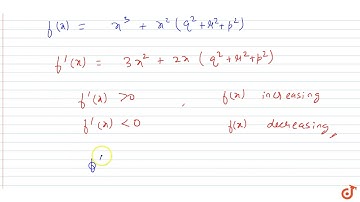 f(x) = x³ + x² (q² + r² + p²)
f'(x) = 3x² + 2x (q² + r² + p²)
f'(x) > 0 , f(x) increasing
f'(x) < 0 f(x) decreasing,
f'